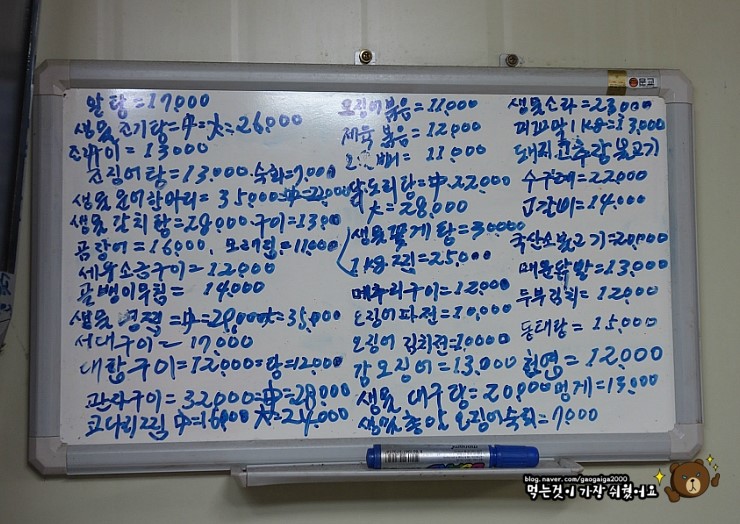 알탕=17,000
생물조기탕=中=大=26,000
조기구이=13000
오징어탕=13,000.숙회=7,000
생물문어항아리=35,000=中=22,000
생물갈치탕=28,000.구이=13,000
곰장어=16,000. 모래집=11,000
새우소금구이=12,000
골뱅이무침=14,000
생물 =中=28,000大=35,000
서대구이=17,000
대합구이=12,000=탕=12,000
관자구이=32,000=中=28,000
코다리찜 中=16,000 大=24,000
오징어볶음=11,000
제육볶음=12,000
11,000
닭도리탕=中.22,000
大=28,000
생물꽃게탕=30,000
1kg찜=25,000
메추리구이=12,000
오징어파전=10,000
오징어 김치전=10,000
갑오징어=13,000
생물 대구탕=20,000
생물총알오징어숙회=7,000
생물소라=23,000
피꼬막1kg=13,000
돼지고추장불고기
수구레=22,000
고갈비=14,000
국산소불고기=20,000
매운닭발=13,000
두부김치=12,000
동태탕=15,000
황면=12,000
멍게=13,000
blog.naver.com/gaogaiga2000
먹는것이 가장 쉬웠어요